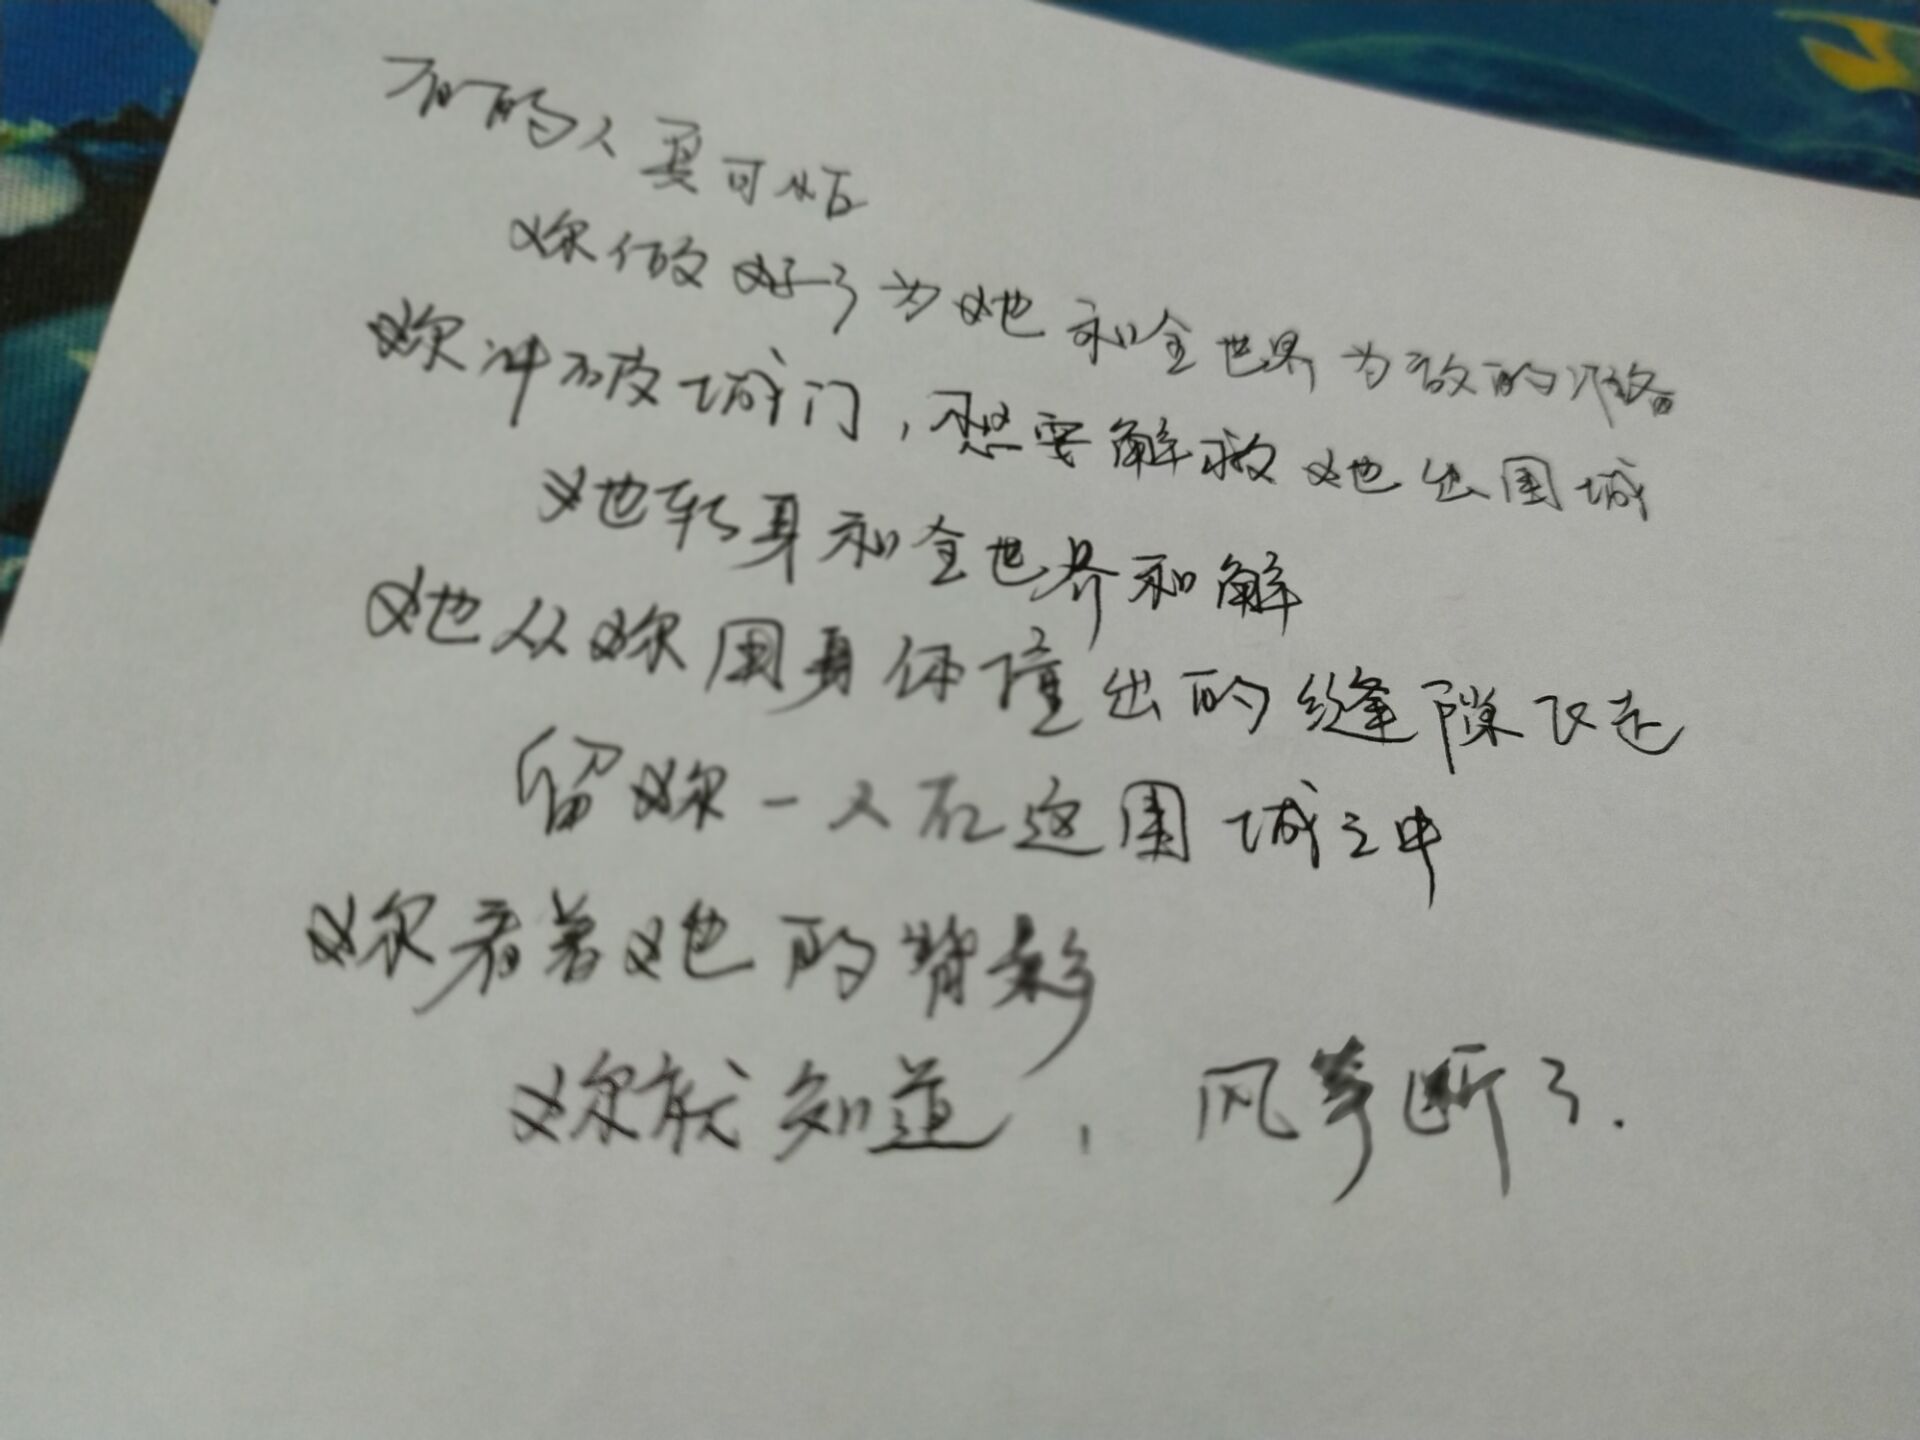 有的人真可怕
妳做好了为她和全世界为敌的准备
妳冲破城门，想要解救她出围城
她转身和全世界和解
她从妳用身体撞出的缝隙飞走
留妳一人在这围城之中
妳看着她的背影
妳就知道，风筝断了.